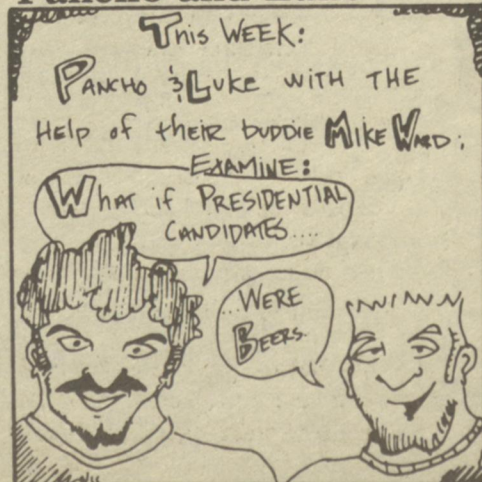 This WEEK:
PANCHO & LUKE WITH THE
HELP of tHEIR buDDIE MIKE WARD:
EXAMINE:
WHAT if PRESIDENTIAL
CANDIDATES....
...WERE
BEERS.